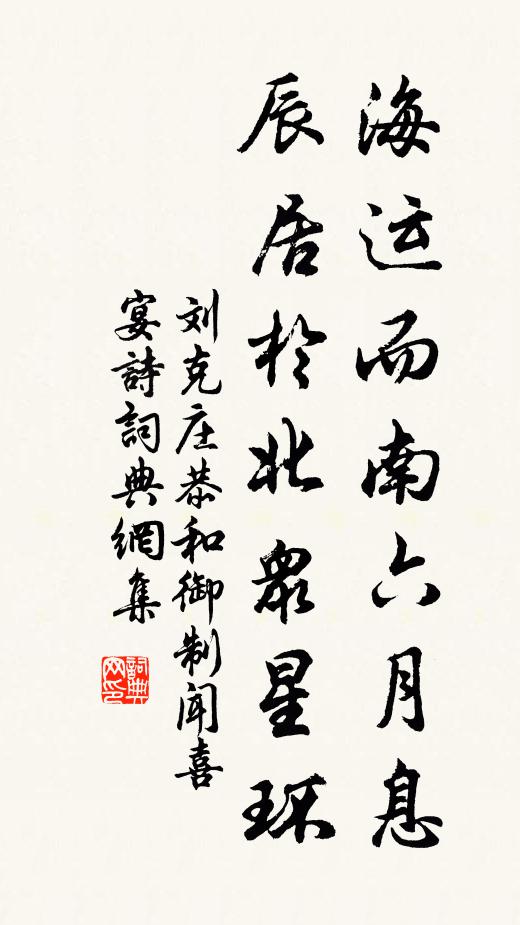 海运而南六月息
辰居於北众星环
刘克庄恭和御制闻喜
宴詩詞典網集
詞典网印